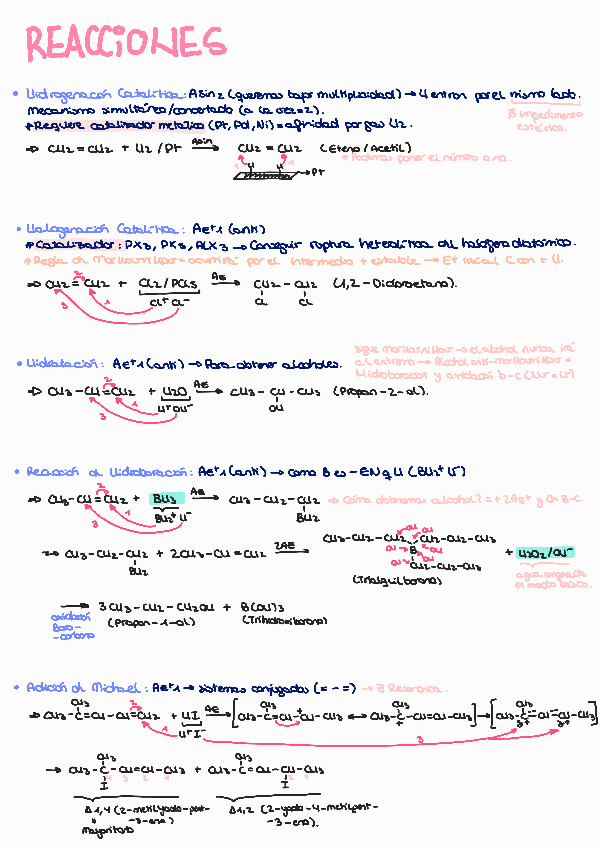 REACCIONES
• Hidrogenación Catalítica: ASin2 (queremos bajar multiplicidad) → H entran por el mismo lado.
mecanismo simultáneo/concertado (a la vez=2).
∄ impedimento
estérico.
*Requiere catalizador metálico (Pt, Pd, Ni) = afinidad por gas H2.
⇒ CH2=CH2 + H2/Pt ASin→ CH2=CH2 (Eteno/Acetil)
*Podemos poner el número a na.
H H
→Pt
• Halogenación Catalítica: AE+1 (anti)
*Catalizador: PX3, FX3, AlX3 → Conseguir ruptura heterolítica del halógeno diatómico.
*Regla de Markovnikov = ocurrirá por el intermedio + estable → E+ inicial C con + H.
⇒ CH2=CH2 + Cl2/PCl5 AE→ CH2-CH2 (1,2-Dicloroetano).
Cl+Cl- Cl Cl
• Hidratación: AE+1 (anti) → Para obtener alcoholes.
Sigue Markovnikov → el alcohol nunca irá
al extremo → Alcohol anti-markovnikov =
Hidroboración y oxidación b-c (Nu-=H-)
⇒ CH3-CH=CH2 + H2O AE→ CH3-CH-CH3 (Propan-2-ol).
H+OH- OH
• Reacción de Hidroboración: AE+1 (anti) → como B es -EN q H (BH2+ H-)
⇒ CH3-CH=CH2 + BH3 AE→ CH3-CH2-CH2 → ¿Cómo obtenemos alcohol? = +2AE+ y Ox B-C.
BH2+ H- BH2
⇒ CH3-CH2-CH2 + 2CH3-CH=CH2 2AE→ CH3-CH2-CH2 CH2-CH2-CH3 + H2O2/OH-
BH2 B
CH2-CH2-CH3
(Trialquilborano)
agua oxigenada
en medio básico.
→ 3CH3-CH2-CH2OH + B(OH)3
oxidación
Boro-
-carbono
(Propan-1-ol) (Trihidroxiborano)
• Adición de Michael: AE+1 → sistemas conjugados (=-=) → ∃ Resonancia.
CH3 CH3 CH3 CH3
⇒ CH3-C=CH-CH=CH2 + HI AE→ [CH3-C=CH-CH-CH3 ↔ CH3-C-CH=CH-CH3] → [CH3-C=CH=CH-CH3]
H+I-
CH3 CH3
→ CH3-C-CH=CH-CH3 + CH3-C=CH-CH-CH3
I I
Δ1,4 (2-metilyodo-pent-
-3-eno)
mayoritario
Δ1,2 (2-yodo-4-metilpent-
-3-eno).